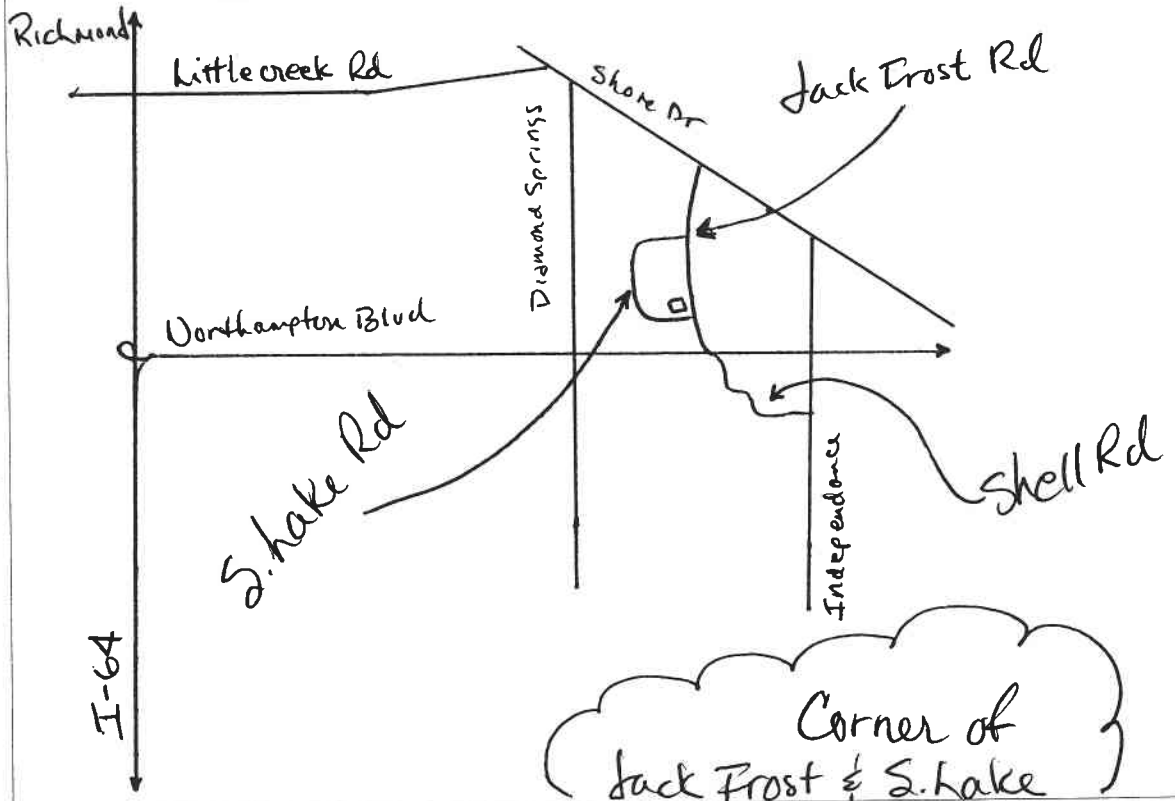 Richmond
Littlecreek Rd
Shore Dr
Jack Frost Rd
Diamond Springs
Northampton Blvd
S. Lake Rd
Shell Rd
Independance
I-64
Corner of
Jack Frost & S. Lake